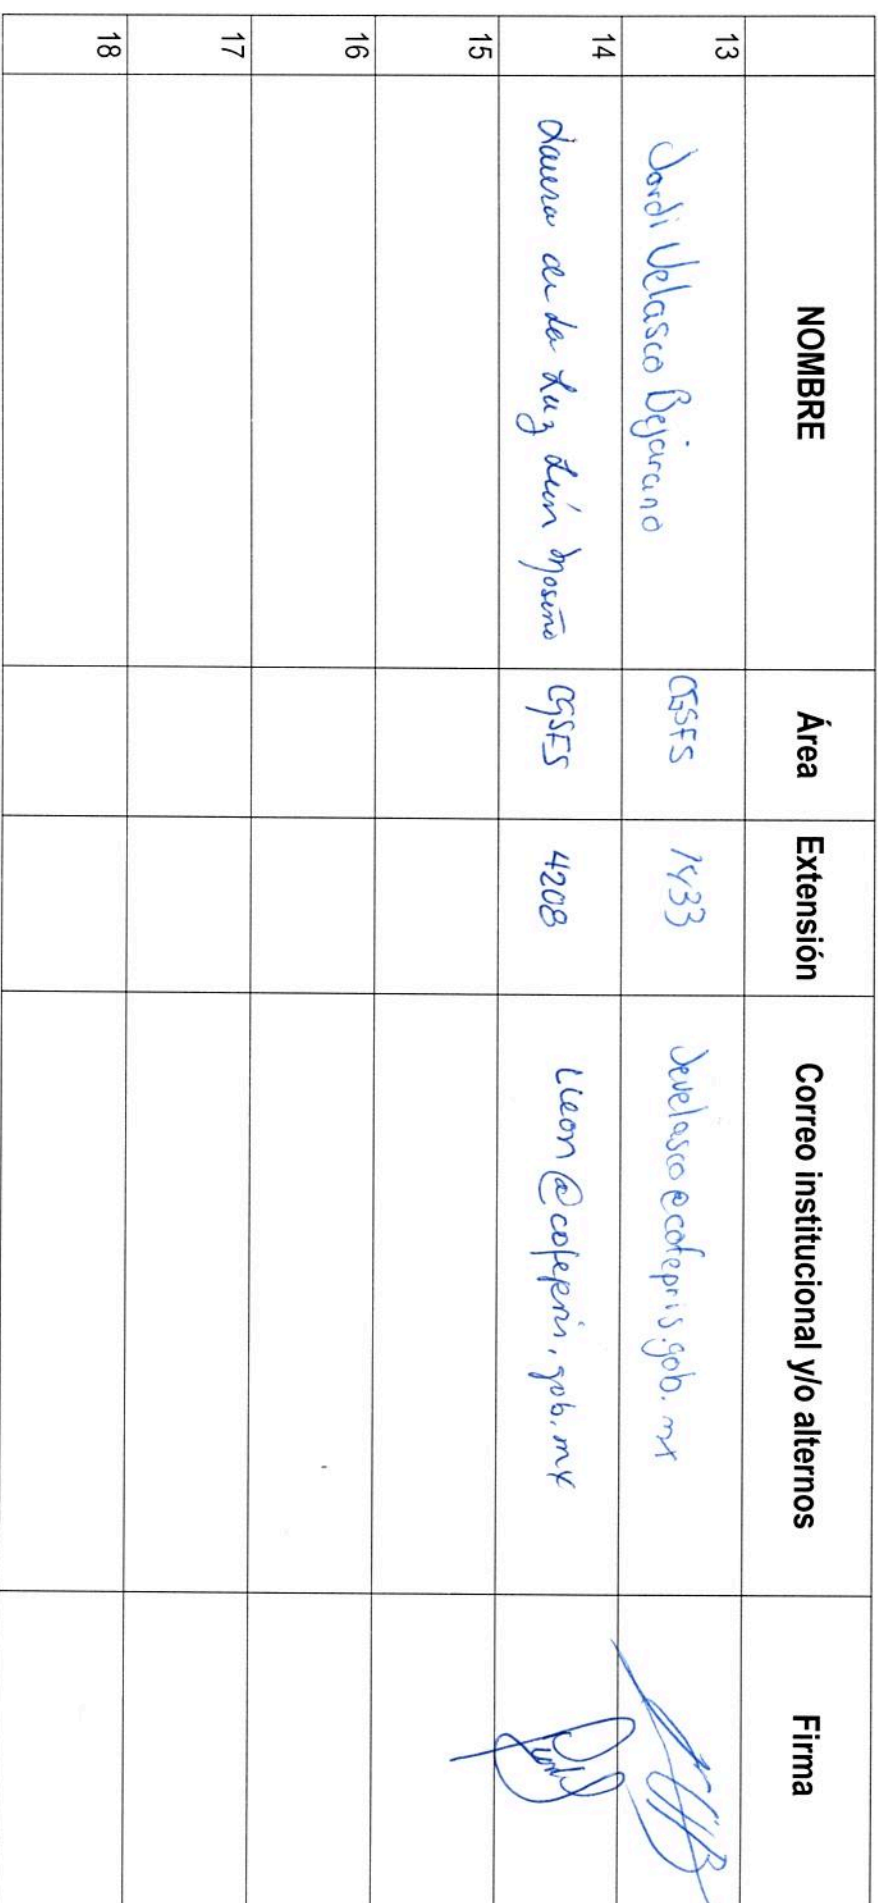 NOMBRE Área Extensión Correo institucional y/o alternos Firma
13 Jordi Velasco Bejarano CGSFS 1433 Jevelasco@cofepris.gob.mx
14 Laura de la Luz León CGSFS 4208 lleon@cofepris.gob.mx
15
16
17
18